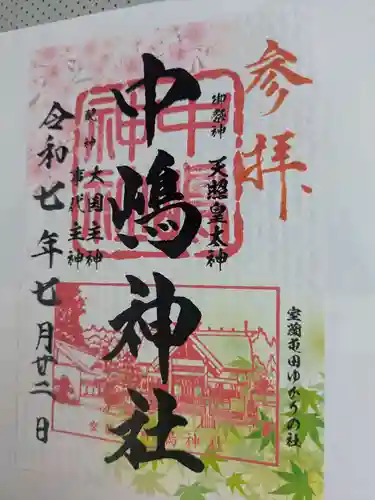 参拝
室蘭屯田ゆかりの社
御祭神 天照皇大神
中嶋神社
配神 大国主神
事代主神
令和七年七月廿二日
中嶋神社